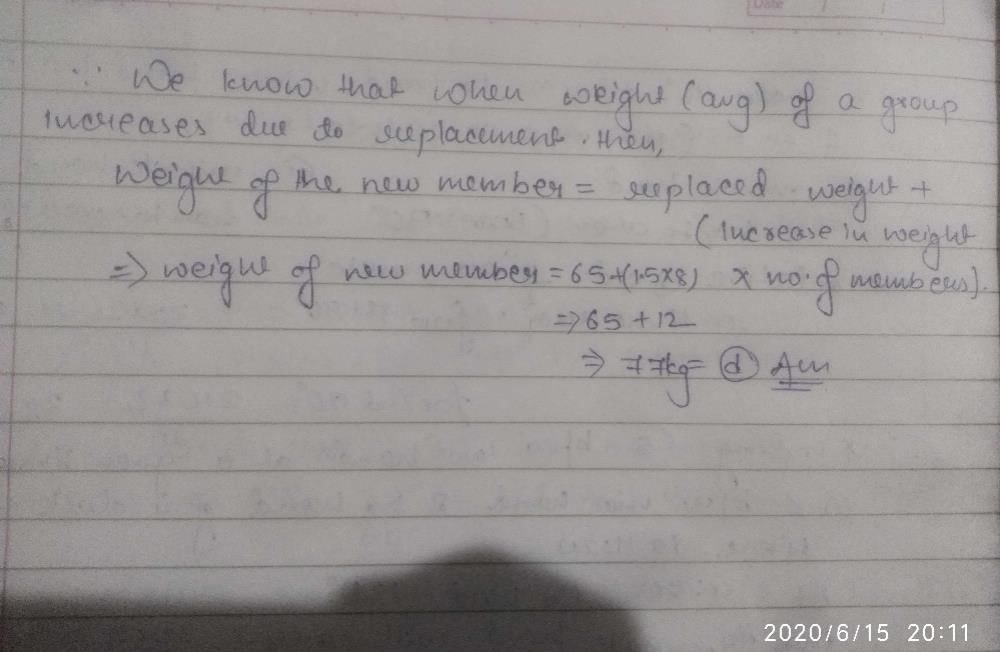 Date / /
∵ We know that when weight (avg) of a group
increases due to replacement. then,
Weight of the new member = replaced weight +
(Increase in weight
⇒ weight of new member = 65+(1.5×8) × no. of members).
⇒ 65 + 12
⇒ 77kg = (d) Ans
2020/6/15 20:11